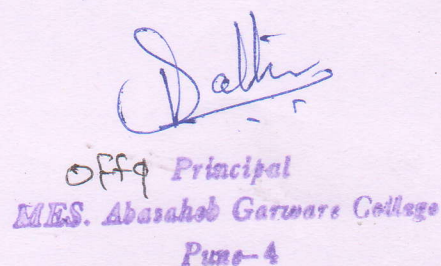 Offg Principal
MES. Abasaheb Garware College
Pune-4